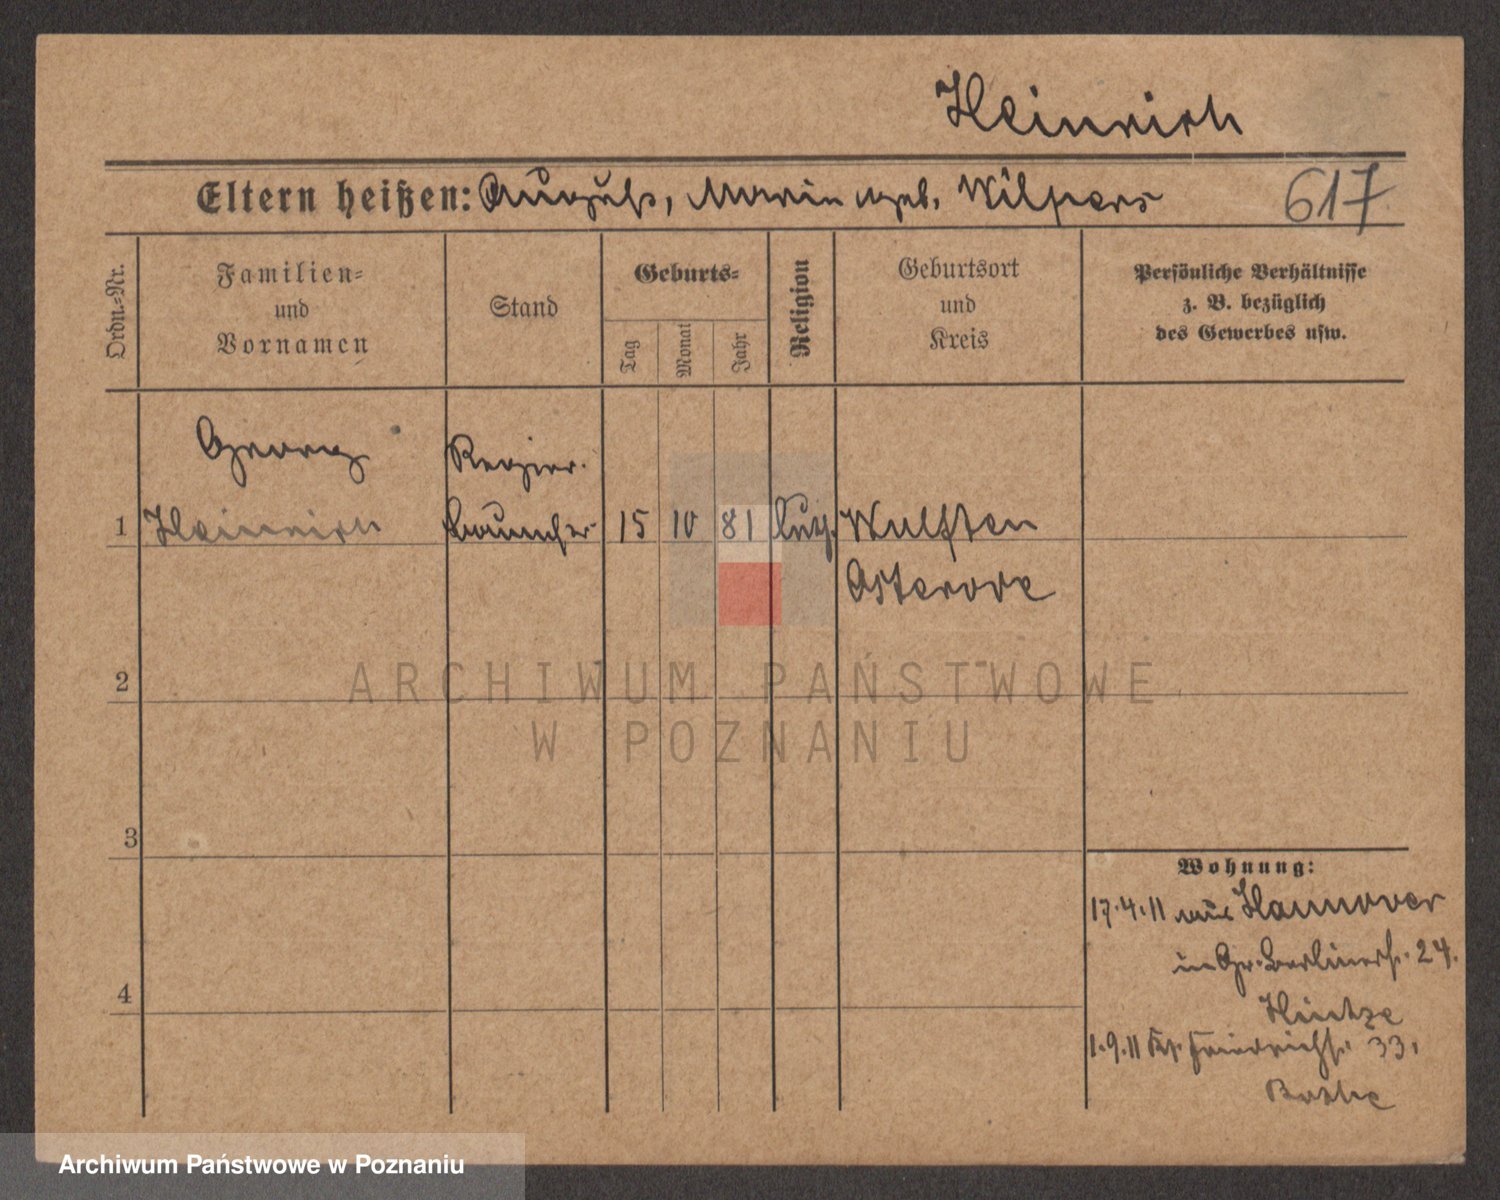 Heinrich
Eltern heißen: August, Marie geb. Wilpers
617
Ordn.-Nr.
Familien-
und
Vornamen
Stand
Geburts-
Tag
Monat
Jahr
Religion
Geburtsort
und
Kreis
Persönliche Verhältnisse
z. B. bezüglich
des Gewerbes usw.
Georg
Regier.
1 Heinrich 15 10 81 luth. Wulften
Osterode
2
3
4
Wohnung:
17.4.11 aus Hannover
in Gr. Berlinerst. 24.
Hintze
1.9.11 Friedrichst. 33,
ARCHIWUM PAŃSTWOWE
W POZNANIU
Archiwum Państwowe w Poznaniu